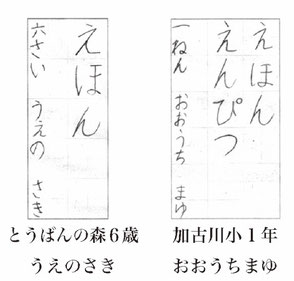 えほん
えんぴつ
一ねん おおうち まゆ
加古川小1年
おおうちまゆ
えほん
六さい うえの さき
とうばんの森6歳
うえのさき